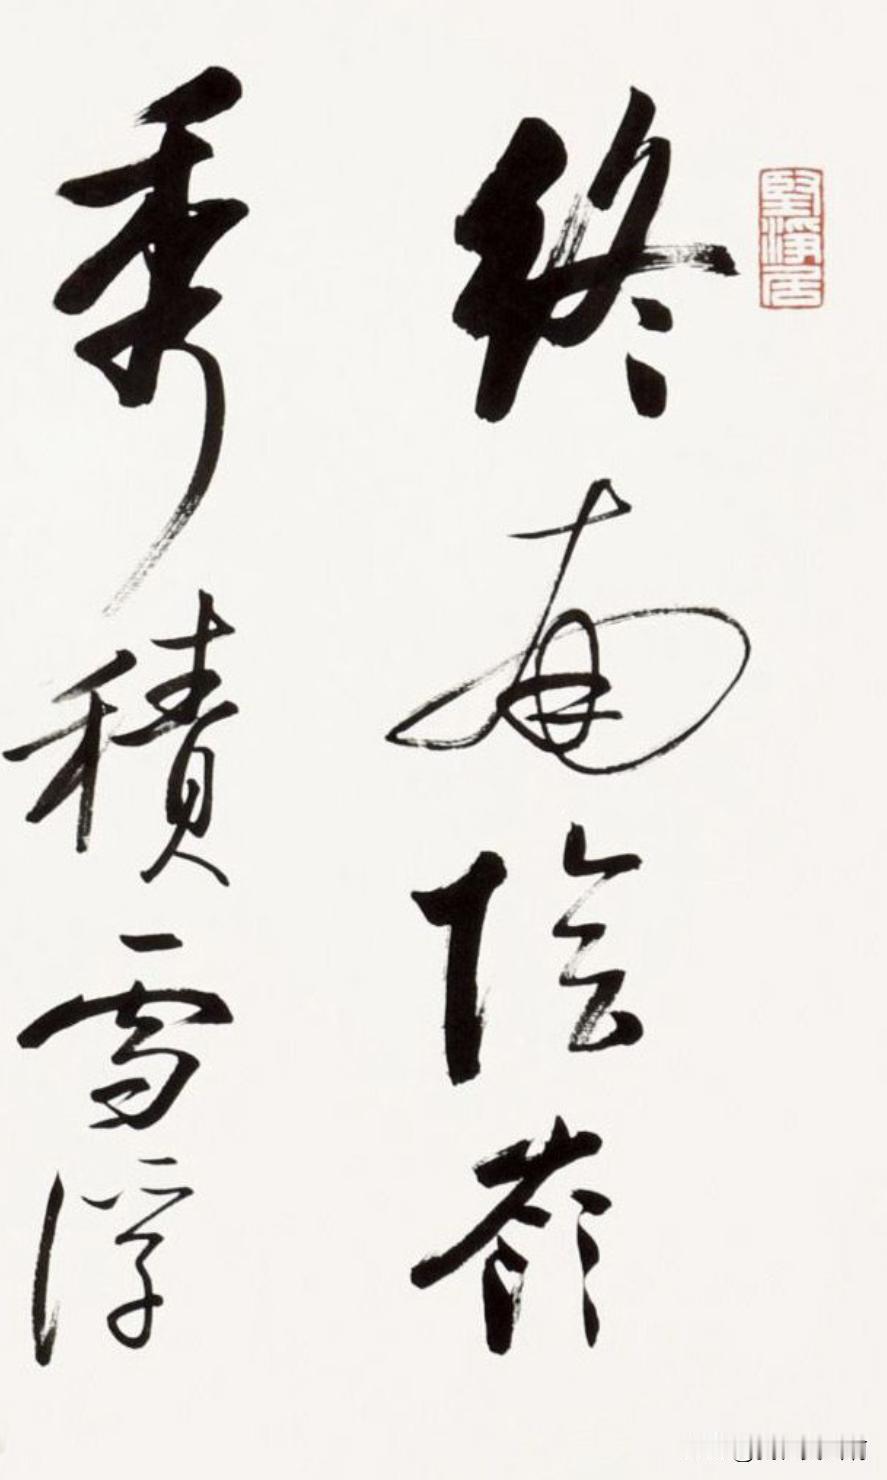 堅淨居
終南陰嶺
秀積雪浮